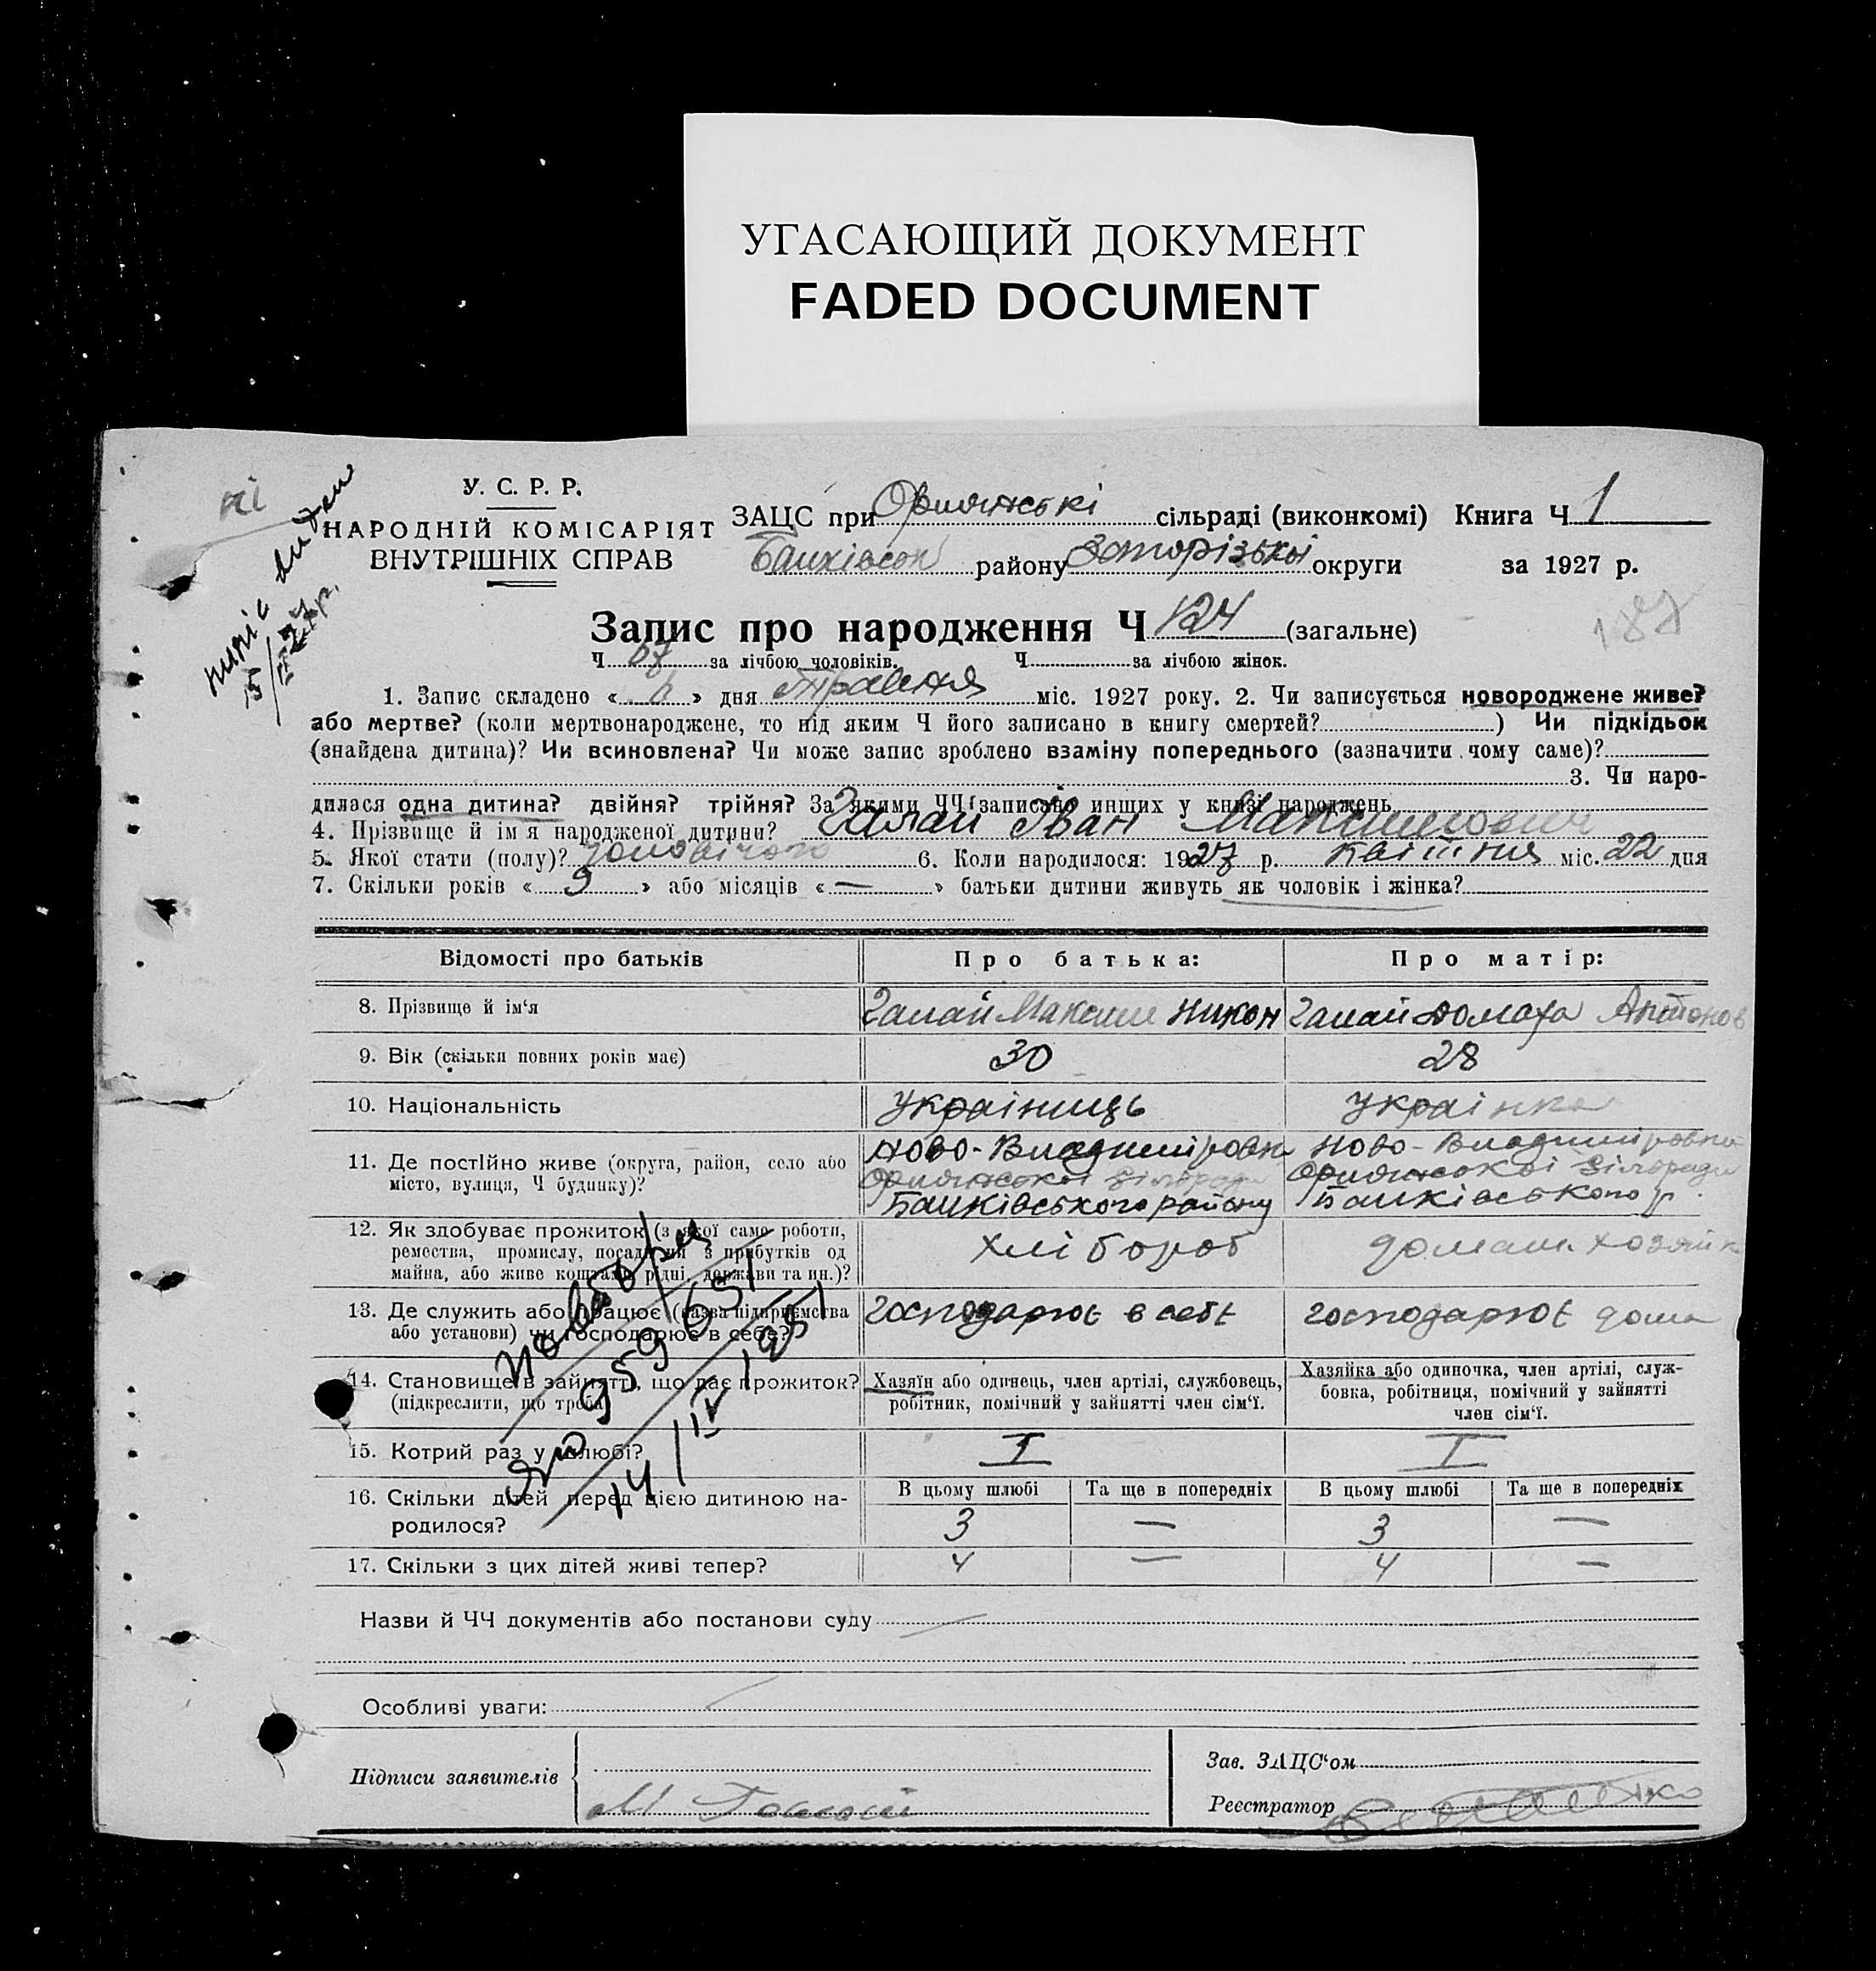 УГАСАЮЩИЙ ДОКУМЕНТ
FADED DOCUMENT
У. С. Р. Р.
НАРОДНІЙ КОМІСАРІЯТ
ВНУТРІШНІХ СПРАВ
ЗАЦС при сільраді (виконкомі) Книга Ч 1
району округи за 1927 р.
Запис про народження Ч 124 (загальне)
Ч 67 за лічбою чоловіків. Ч за лічбою жінок.
1. Запис складено « » дня травня міс. 1927 року. 2. Чи записується новороджене живе?
або мертве? (коли мертвонароджене, то під яким Ч його записано в книгу смертей? ) Чи підкідьок
(знайдена дитина)? Чи всиновлена? Чи може запис зроблено взаміну попереднього (зазначити чому саме)?
3. Чи наро-
дилася одна дитина? двійня? трійня? За якими ЧЧ записано инших у книзі народжень
4. Прізвище й ім'я народженої дитини? Галай Іван Максимович
5. Якої стати (полу)? чоловічого 6. Коли народилося: 1927 р. квітня міс. 22 дня
7. Скільки років « 9 » або місяців « — » батьки дитини живуть як чоловік і жінка?
Відомості про батьків Про батька: Про матір:
8. Прізвище й ім'я Галай Максим Никон Галай Домаха Антонов
9. Вік (скільки повних років має) 30 28
10. Національність Украіниць Украінка
11. Де постійно живе (округа, район, село або
місто, вулиця, Ч будинку)?
Ново-Владиміровка Ново-Владиміровка
Банківського району Банківського р.
12. Як здобуває прожиток (з якої само роботи,
ремества, промислу, посади чи з прибутків од
майна, або живе коштами рідні, держави та ин.)?
хлібороб домаш. хозяйк
13. Де служить або працює (назва підприємства
або установи) чи господарює в себе?
господарює в себе господарює дома
14. Становище в занятті, що дає прожиток?
(підкреслити, що треба)
Хазяїн або одинець, член артілі, службовець,
робітник, помічний у зайнятті член сім'ї.
Хазяйка або одиночка, член артілі, служ-
бовка, робітниця, помічний у зайнятті
член сім'ї.
15. Котрий раз у шлюбі? I I
16. Скільки дітей перед цією дитиною на-
родилося?
В цьому шлюбі Та ще в попередніх В цьому шлюбі Та ще в попередніх
3 — 3 —
17. Скільки з цих дітей живі тепер? 4 — 4 —
Назви й ЧЧ документів або постанови суду
Особливі уваги:
Підписи заявителів
Зав. ЗАЦС'ом
Реєстратор